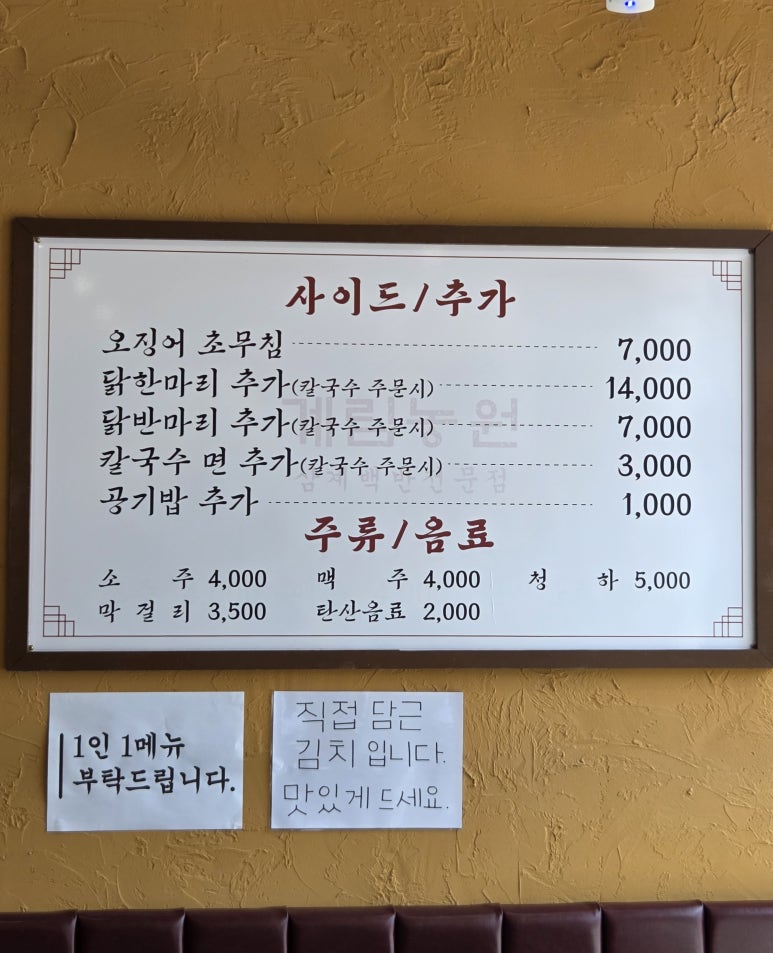 사이드/추가
오징어 초무침 7,000
닭한마리 추가(칼국수 주문시) 14,000
닭반마리 추가(칼국수 주문시) 7,000
칼국수 면 추가(칼국수 주문시) 3,000
공기밥 추가 1,000
계림농원
삼계백반전문점
주류/음료
소 주 4,000 맥 주 4,000 청 하 5,000
막 걸 리 3,500 탄산음료 2,000
1인 1메뉴
부탁드립니다.
직접 담근
김치 입니다.
맛있게 드세요.